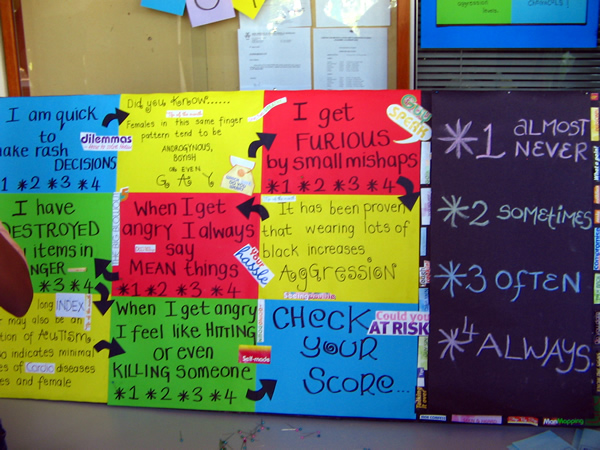 I am quick
to
make rash
DECISIONS
1 *2 *3 *4
dilemmas
Did you know......
Females in this same finger
pattern tend to be
ANDROGYNOUS,
BOYISH
OR EVEN
G A Y
I get
FURIOUS
by small mishaps
*1 *2 *3 *4
SPEAK
I have
DESTROYED
items in
ANGER
*3 *4
When I get
angry I always
say
MEAN things
*1 *2 *3 *4
your
hassle
It has been proven
that wearing lots of
black increases
AGGRESSION
long INDEX
may also be an
of AUTISM
also indicates minimal
of Cardio diseases
and female
When I get angry
I feel like HITTING
or even
KILLING someone
*1 *2 *3 *4
Self-made
CHECK
YOUR
SCORE...
Could you
AT RISK
*1 ALMOST
NEVER
*2 SOMETIMES
*3 OFTEN
*4 ALWAYS